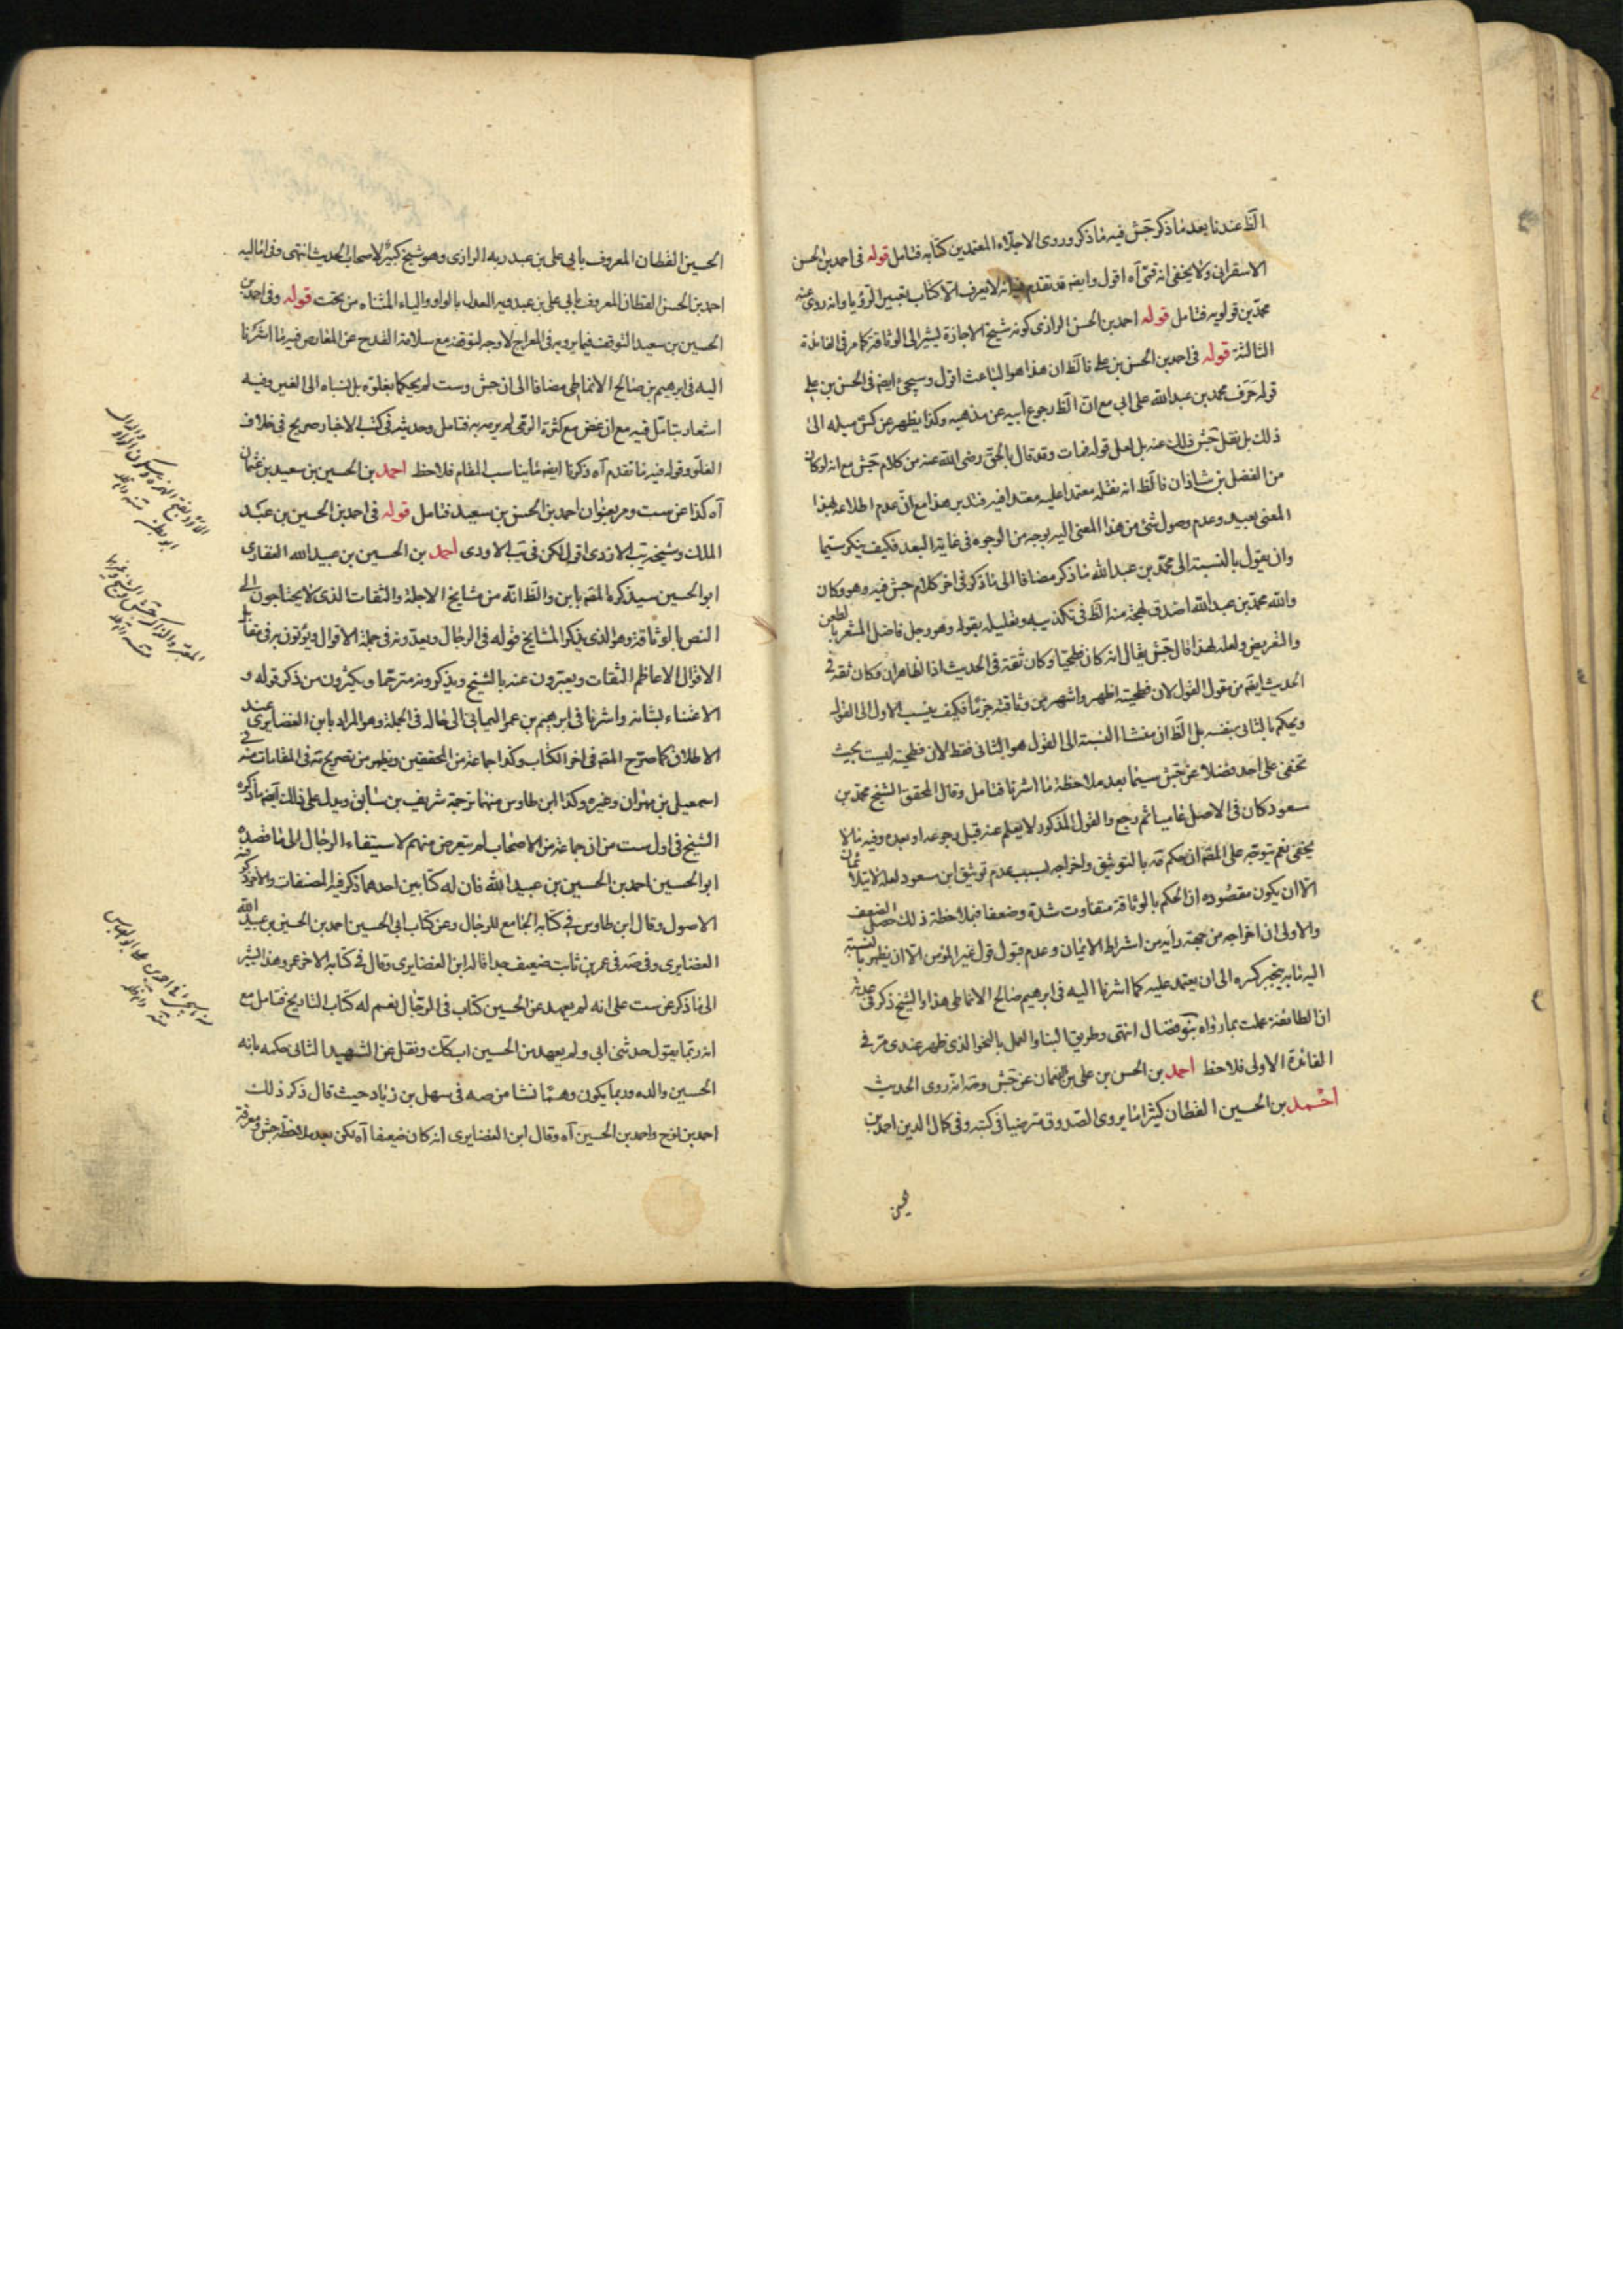 الظ عندنا بعد ما ذكر جش فيه ما ذكر وروى الاجلاء المعتمدين كتابه فتامل قوله فى احمد بن الحسن
الاسفراينى ولا يخفى انه قمى آه اقول وايضم قد تقدم انه لا يعرف الا كتاب تعبير الرؤيا وانه روى عنه
محمد بن قولويه فتامل قوله احمد بن الحسن الرازى كونه شيخ الاجازة يشير الى الوثاقة كما مر فى الفائدة
الثالثة قوله فى احمد بن الحسن بن على فالظ ان هذا هو الباعث اقول وسيجئ ايضم فى الحسن بن على
قوله حرف محمد بن عبد الله على ابى مع ان الظ رجوع ابيه عن مذهبه وكذا يظهر عن كش ميله الى
ذلك بل نقل جش ذلك عنه بل لعل قوله فمات وقد قال بالحق رضى الله عنه من كلام جش مع انه لو كان
من الفضل بن شاذان فالظ انه نقله معتمدا عليه معتدا فيه فتدبر هذا مع ان عدم اطلاعه بهذا
المعنى بعيد وعدم وصول شئ من هذا المعنى اليه بوجه من الوجوه فى غاية البعد فكيف ينكر سيما
وان يقول بالنسبة الى محمد بن عبد الله ما ذكر مضافا الى ما ذكر فى اخر كلام جش فيه وهو وكان
والله محمد بن عبد الله اصدق لهجة منه الظ فى تكذيبه وتغليله بقوله وهو رجل فاضل المشعر بالطعن
والتعريض ولعله لهذا قال جش يقال انه كان فطحيا وكان ثقة فى الحديث اذ الظاهر ان وكان ثقة فى
الحديث ايضم من مقول القول لان فطحيته اظهر واشهر من وثاقته جزما فكيف ينسب الاول الى القول
ويحكم بالثانى بنفسه بل الظ ان منشا النسبة الى القول هو الثانى فقط لان فطحيته ليست بحيث
تخفى على احد فضلا عن جش سيما بعد ملاحظة ما اشرنا فتامل وقال المحقق الشيخ محمد بن
سعود كان فى الاصل عاميا ثم رجع والقول المذكور لا يعلم عنه قبل رجوعه او بعده وفيه ما لا
يخفى نعم يتوجه على المصم ان حكم مه بالتوثيق واخراجه بسبب عدم توثيق ابن سعود لعله لا يتلائمان
الا ان يكون مقصوده ان الحكم بالوثاقة متفاوت شدة وضعفا فبملاحظة ذلك حصل الضعف
والاولى ان اخراجه من جهة رأيه من اشتراط الايمان وعدم قبول قول غير المؤمن الا ان يظهر بالنسبة
اليه ما به ينجبر كسره الى ان يعتمد عليه كما اشرنا اليه فى ابرهيم صالح الانماطى هذا والشيخ ذكر فى عدته
ان الطائفة عملت بما رواه بنو فضال انتهى وطريق البناء والعمل بالنحو الذى ظهر عندى مر فى
الفائدة الاولى فلاحظ احمد بن الحسن بن على بن النعمان عن جش ومه انه روى الحديث
احمد بن الحسين القطان كثيرا ما يروى الصدوق مترضيا فى كتبه وفى كمال الدين احمد بن
الحسين
الحسين القطان المعروف بابى على بن عبد ربه الرازى وهو شيخ كبير لاصحاب الحديث انتهى وفى اماليه
احمد بن الحسن القطان المعروف بابى على بن عبدويه العدل بالواو والياء المثناه من تحت قوله وفى احمد بن
الحسين بن سعيد التوقف فيما يرويه فى المعراج لا وجه لتوقفه مع سلامة القدح عن المعارض فيه ما اشرنا
اليه فى ابرهيم بن صالح الانماطى مضافا الى ان جش وست لم يحكما بغلوه بل نسباه الى الغير وفيه
اشعار بتامل فيه مع ان غض مع كثرة الرمى لم يرمه به فتامل وحديثه فى كتب الاخبار صريح فى خلاف
الغلو وقوله فيه ما تقدم آه ذكرنا ايضم ما يناسب المقام فلاحظ احمد بن الحسين بن سعيد بن عثمان
آه كذا عن ست ومر بعنوان احمد بن الحسن بن سعيد فتامل قوله فى احمد بن الحسين بن عبد
الملك وشيخه يب الازدى اقول لكن فى يب الاودى احمد بن الحسين بن عبيد الله الغضارى
ابو الحسين سيذكره المصم بابن والظ انه من مشايخ الاجلة والثقات الذى لا يحتاجون الى
النص بالوثاقة وهو الذى يذكر المشايخ قوله فى الرجال ويعدونه فى جملة الاقوال ويؤتون به فى مقابل
الاقوال الاعاظم الثقات ويعبرون عنه بالشيخ ويذكرونه مترحما ويكثرون من ذكر قوله و
الاعتناء بشانه واشرنا فى ابرهيم بن عمر اليمانى الى حاله فى الجملة وهو المراد بابن الغضايرى عند
الاطلاق كما صرح المصم فى اخر الكتاب وكذا جماعة من المحققين ويظهر من تصريح مه فى المقامات منه فى
اسمعيل بن مهران وغيره وكذا ابن طاوس منهما ترجمة شريف بن سابق ويدل على ذلك ايضم ما ذكره
الشيخ فى اول ست من ان جماعة من الاصحاب لم يتعرض منهم لاستيفاء الرجال الا ما قصده
ابو الحسين احمد بن الحسين بن عبيد الله فان له كتابين احدهما ذكر فيه المصنفات والاخر ذكر فيه
الاصول وقال ابن طاوس فى كتابه الجامع للرجال وعن كتاب ابى الحسين احمد بن الحسين بن عبيد الله
الغضايرى وفى صه فى عمر بن ثابت ضعيف جدا قاله ابن الغضايرى وقال فى كتابه الاخر عمرو هذا اشير
الى ما ذكر عن ست على انه لم يعهد عن الحسين كتاب فى الرجال نعم له كتاب التاريخ فتامل مع
انه ربما يقول حدثنى ابى ولم يعهد من الحسين اب كك ونقل عن الشهيد الثانى حكمه بانه
الحسين والده وربما يكون وهما نشا من صه فى سهل بن زياد حيث قال ذكر ذلك
احمد بن نوح واحمد بن الحسين آه وقال ابن الغضايرى انه كان ضعيفا آه لكن بعد ملاحظة جش ومعرفة